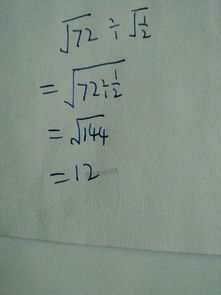 √72 ÷ √(1/2)
= √(72÷1/2)
= √144
= 12